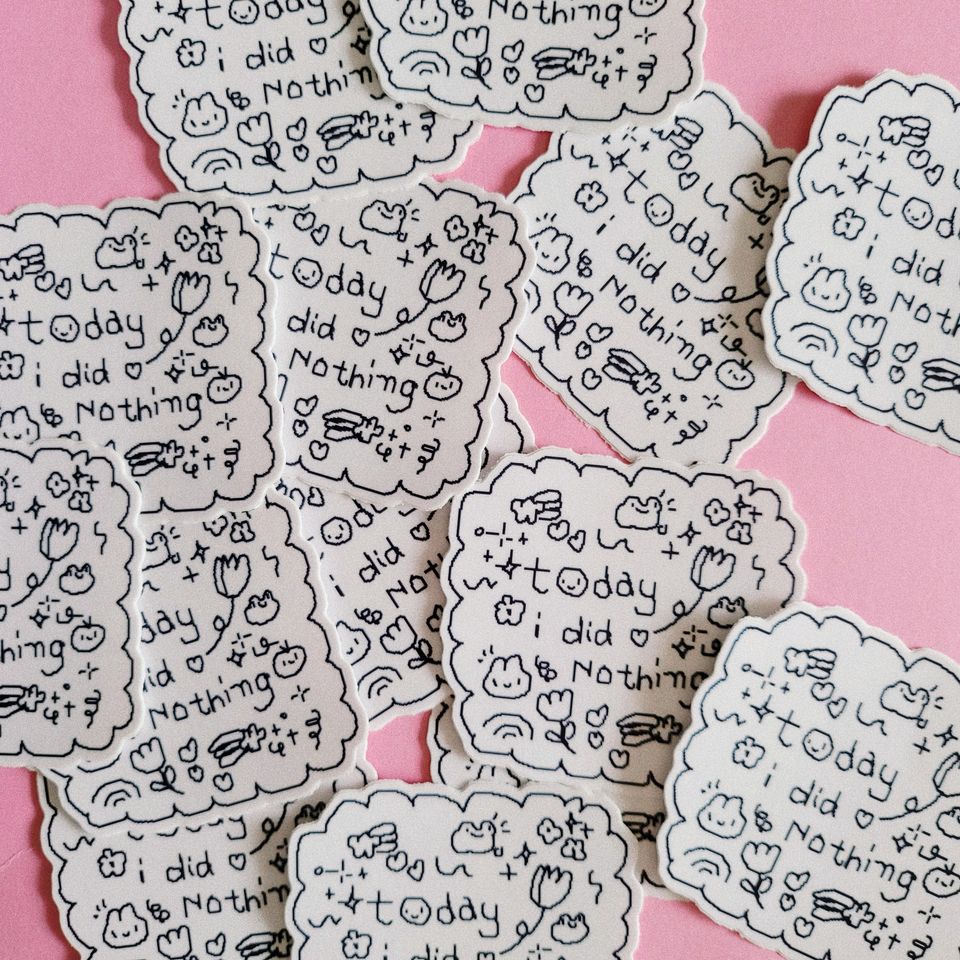 today
i did
Nothin
Nothing
today
i did
Nothing
toda
i did
Noth
today
i did
Nothing
today
did
Nothing
y
hing
day
id
Nothing
i did
Not
today
i did
Nothing
today
i did
Nothing
i did
Nothin
today
i did